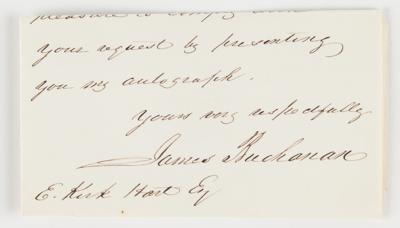 pleasure to comply with
your request by presenting
you my autograph.
Yours very respectfully
James Buchanan
E. Kirk Hart Esq